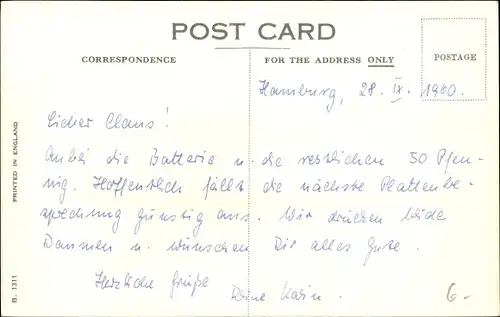 POST CARD
CORRESPONDENCE
FOR THE ADDRESS ONLY
POSTAGE
Hamburg, 28. IX. 1960.
Lieber Claus!
Anbei die Batterie u. die restlichen 50 Pfen-
nig. Hoffentlich fällt die nächste Plattenbe-
sprechung günstig aus. Wir drücken beide
Daumen u. wünschen Dir alles Gute.
Herzliche Grüße
Deine Karin.
6.-
PRINTED IN ENGLAND
B. 1311